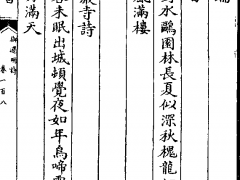 水鷗園林長夏似深秋槐龍
風滿樓
寺詩
未眠出城頓覺夜如年烏啼
滿天
御選明詩 卷一百八